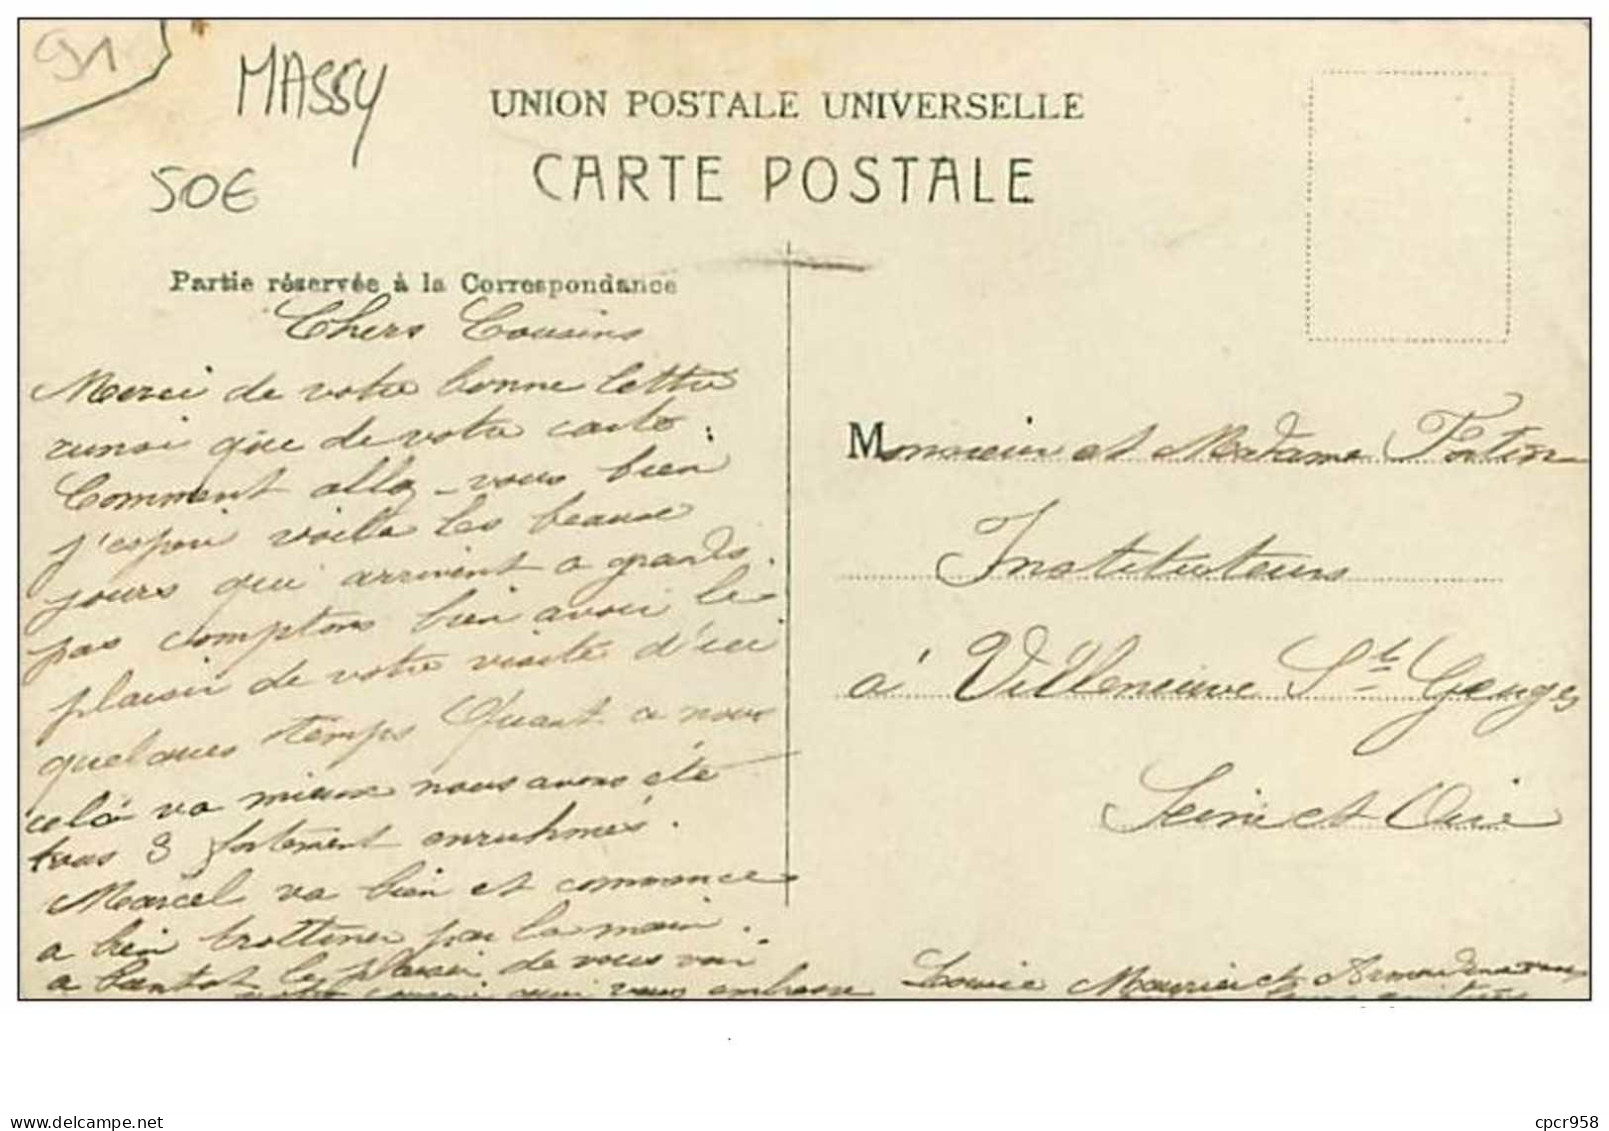 91
MASSY
50€
UNION POSTALE UNIVERSELLE
CARTE POSTALE
Partie réservée à la Correspondance
Chers Cousins
Merci de votre bonne lettre
ainsi que de votre carte.
Comment allez-vous bien
j'espere voilla les beaux
jours qui arrivent a grands
pas comptons bien avoir le
plaisir de votre visite d'ici
quelques temps Quant a nous
celà va mieux nous avons été
tous 3 fortement enruhmés.
Marcel va bien et commence
a bien trottiner par la main.
a bientot le plaisir de vous voir
votre cousin qui vous embrasse
Monsieur et Madame Fortin
Instituteurs
à Villeneuve St Georges
Seine et Oise
Louise Maurice et Armandine
cpcr958